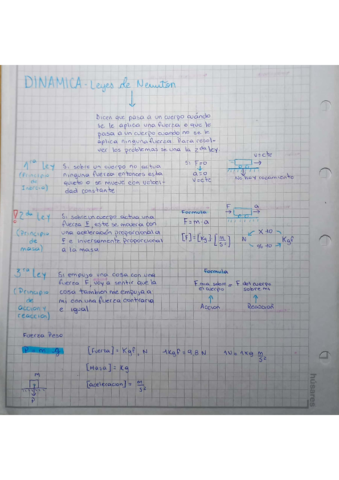 DINAMICA - Leyes de Newton
Dicen que pasa a un cuerpo cuando
se le aplica una fuerza o que le
pasa a un cuerpo cuando no se le
aplica ninguna fuerza. Para resol-
ver los problemas se usa la 2da Ley
1era Ley
(Principio
de
Inercia)
Si sobre un cuerpo no actua
ninguna fuerza entonces esta
quieto o se mueve con veloci-
dad constante.
Si F=0
a=0
v=cte
v=cte
no hay rozamiento
2da Ley
(Principio
de
masa)
Si sobre un cuerpo actua una
fuerza F, este se movera con
una aceleración proporcional a
F e inversamente proporcional
a la masa.
Formula
F=m·a
[F]=[Kg]·[m/s²]
F
a
N
x 10
Kgf
3era Ley
(Principio
de
acción y
reacción)
Si empujo una cosa con una
fuerza F, voy a sentir que la
cosa tambien me empuja a
mi con una fuerza contraria
e igual.
Formula
F mia sobre el cuerpo = F del cuerpo sobre mi
Accion
Reaccion
Fuerza Peso
[Fuerza]=Kgf, N
1kgf=9.8 N
1N=1kg m/s²
[masa]=kg
[aceleracion]=m/s²
m
P
húsares